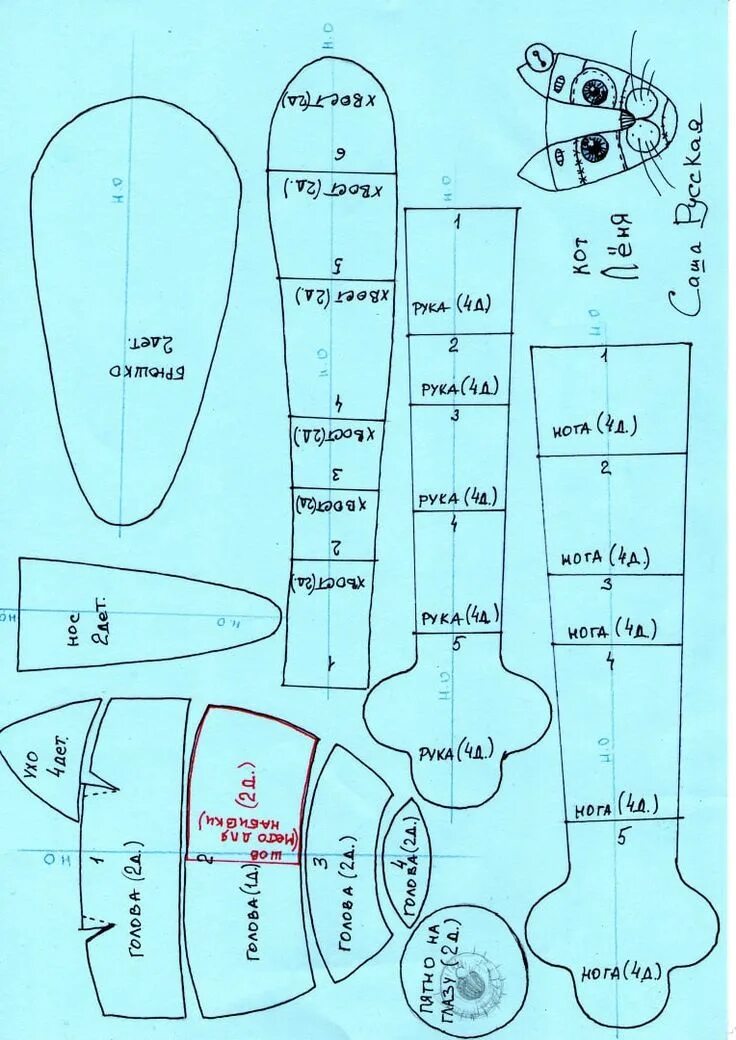 Н.О
БРЮШКО
2дет.
Н.О
ХВОСТ(2д)
6
ХВОСТ(2д.)
5
ХВОСТ(2д.)
Н.О
4
ХВОСТ(2д.)
3
ХВОСТ(2д)
2
ХВОСТ(2д.)
1
Н.О
1
РУКА (4Д)
2
РУКА(4Д)
3
РУКА(4Д.)
4
РУКА(4Д)
5
Н.О
РУКА(4Д.)
КОТ
ЛЁНЯ
Саша Русская
Н.О
1
НОГА(4Д.)
2
НОГА(4Д.)
3
НОГА(4Д.)
4
Н.О
НОГА(4Д.)
5
НОГА(4Д.)
НО
НОС
2дет.
Н.О
УХО
4дет.
НО
1
ГОЛОВА(2Д.)
(2Д.)
ШОВ
(МЕСТО ДЛЯ
НАБИВКИ)
2
ГОЛОВА(1Д)
3
ГОЛОВА(2Д.)
4
ГОЛОВА(2Д.)
ПЯТНО НА
ГЛАЗУ(2Д.)